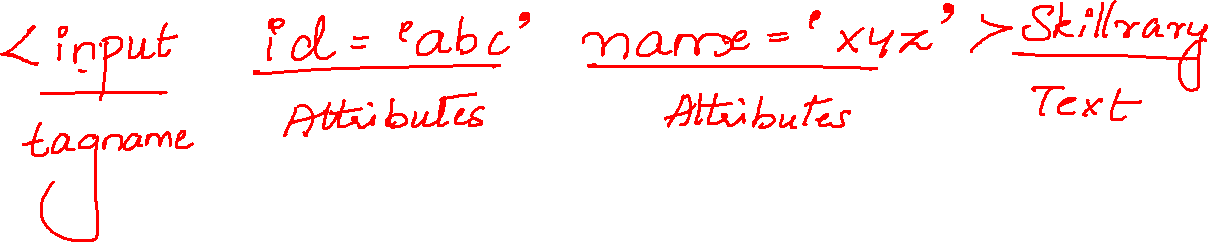 < input id = 'abc' name = 'xyz' > Skillrary
tagname Attributes Attributes Text